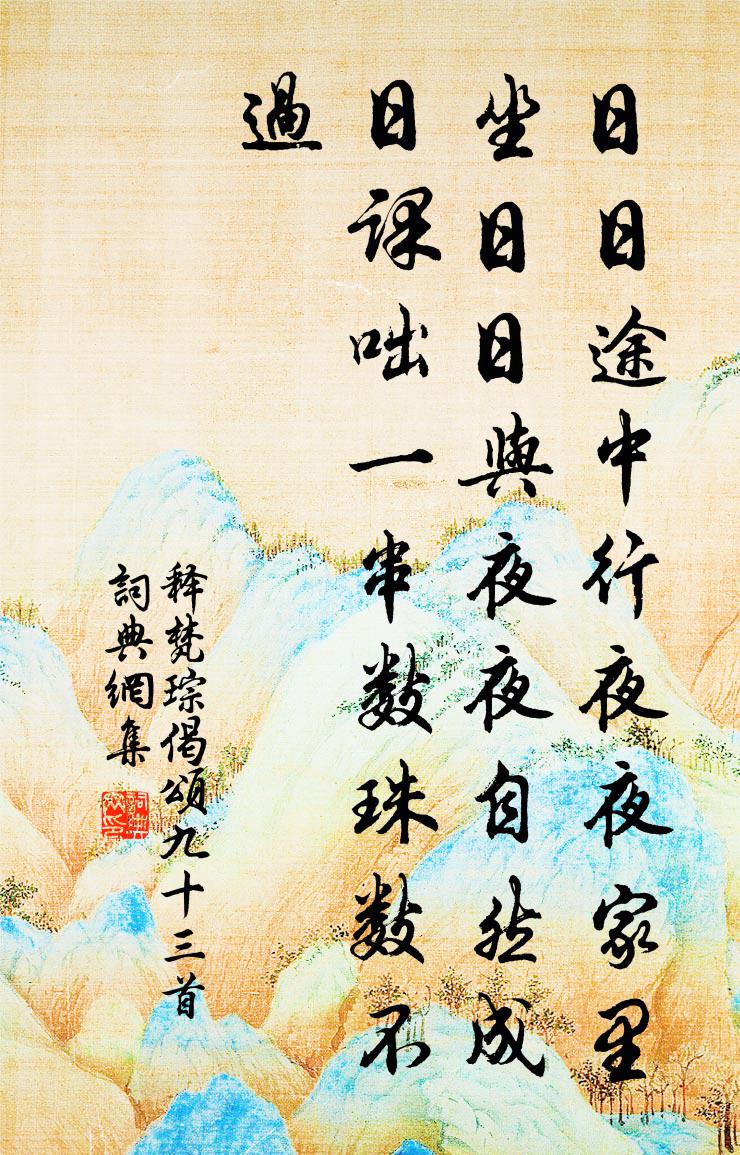 日日途中行夜夜家里
坐日日與夜夜自然成
日課咄一串数珠数不
過
释梵琮偈頌九十三首
詞典網集